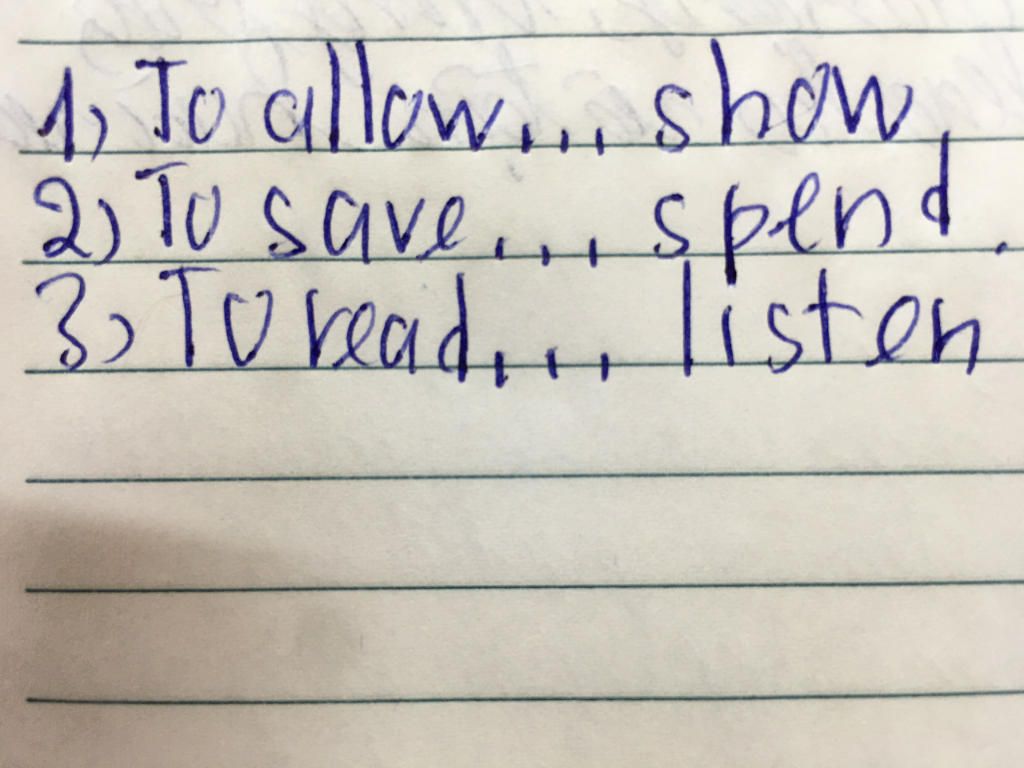 1) To allow... show.
2) To save... spend.
3) To read... listen